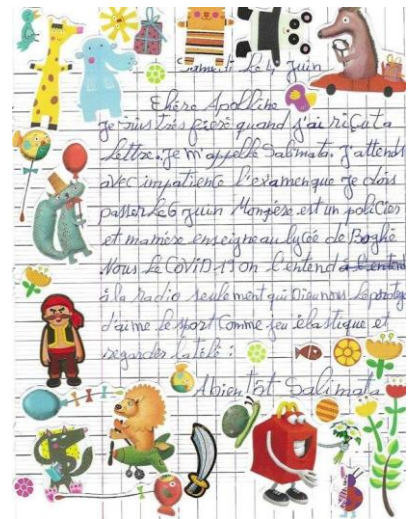 Samedi le 4 Juin
Chère Apolline
Je suis très fière quand j'ai riçu ta
lettre. Je m'appelle Salimata. J'attends
avec impatience l'examen que je dois
passer le 6 juin Mon père est un policier
et ma mère enseigne au lycée de Boghé
Nous le COVID-19 on l'entend
à la radio seulement qui Dieu nous protège
J'aime le sport comme jeu élastique et
regarder la télé :
A bientôt Salimata